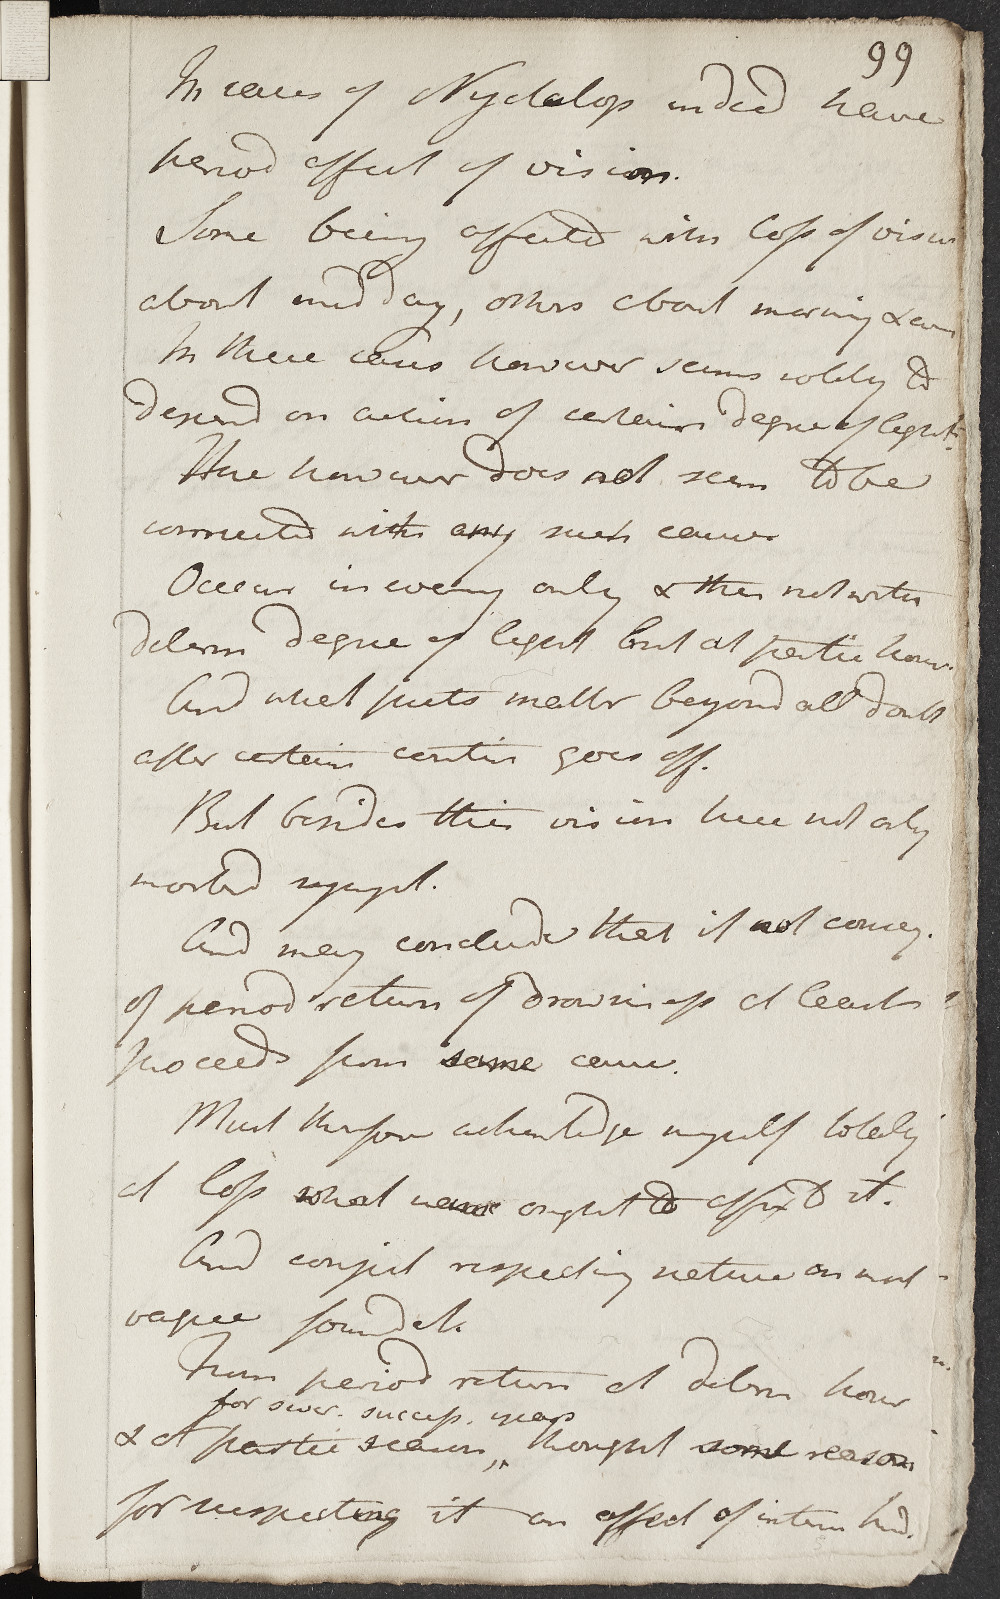 99
In cases of Nyctalop indeed have
period affect of vision.
Some being affected with loss of vision
about mid day, others about morning & even
In these cases however seems solely to
depend on action of certain degree of light.
Here however does not seem to be
connected with any such cause
Occur in evening only & then not with
determ degree of light but at partic hour.
And what puts matter beyond all doubt
after certain contin goes off.
But besides this vision here not only
morbid sympt.
And may conclude that if not conseq.
of period return of drowsiness at least
proceeds from same cause.
Must therefore acknowledge myself totally
at loss what name ought to affix to it.
And conject respecting nature on most
vague foundat.
From period return at determ hour
for sever. success. years
& at partic season, thought some reason
for suspecting it an affect of interm kind.